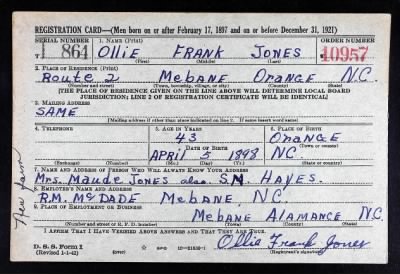 REGISTRATION CARD—(Men born on or after February 17, 1897 and on or before December 31, 1921)
SERIAL NUMBER 1. NAME (Print) ORDER NUMBER
T 864 Ollie FRANK JONES 10957
(First) (Middle) (Last)
2. PLACE OF RESIDENCE (Print)
Route 2 Mebane Orange N.C.
(Number and street) (Town, township, village, or city) (County) (State)
[THE PLACE OF RESIDENCE GIVEN ON THE LINE ABOVE WILL DETERMINE LOCAL BOARD
JURISDICTION; LINE 2 OF REGISTRATION CERTIFICATE WILL BE IDENTICAL]
3. MAILING ADDRESS
SAME
[Mailing address if other than place indicated on line 2. If same insert word same]
4. TELEPHONE 5. AGE IN YEARS 6. PLACE OF BIRTH
43 Orange
DATE OF BIRTH (Town or county)
APRIL 5 1898 NC
(Exchange) (Number) (Mo.) (Day) (Yr.) (State or country)
7. NAME AND ADDRESS OF PERSON WHO WILL ALWAYS KNOW YOUR ADDRESS
Mrs. Maude Jones also S.M. HAYES.
8. EMPLOYER'S NAME AND ADDRESS
R.M. McDADE Mebane, N.C.
9. PLACE OF EMPLOYMENT OR BUSINESS
Mebane Alamance N.C.
(Number and street or R. F. D. number) (Town) (County) (State)
I AFFIRM THAT I HAVE VERIFIED ABOVE ANSWERS AND THAT THEY ARE TRUE.
D. S. S. Form 1
(Revised 1-1-42) (over) 16—21630-1
Ollie Frank Jones
(Registrant's signature)